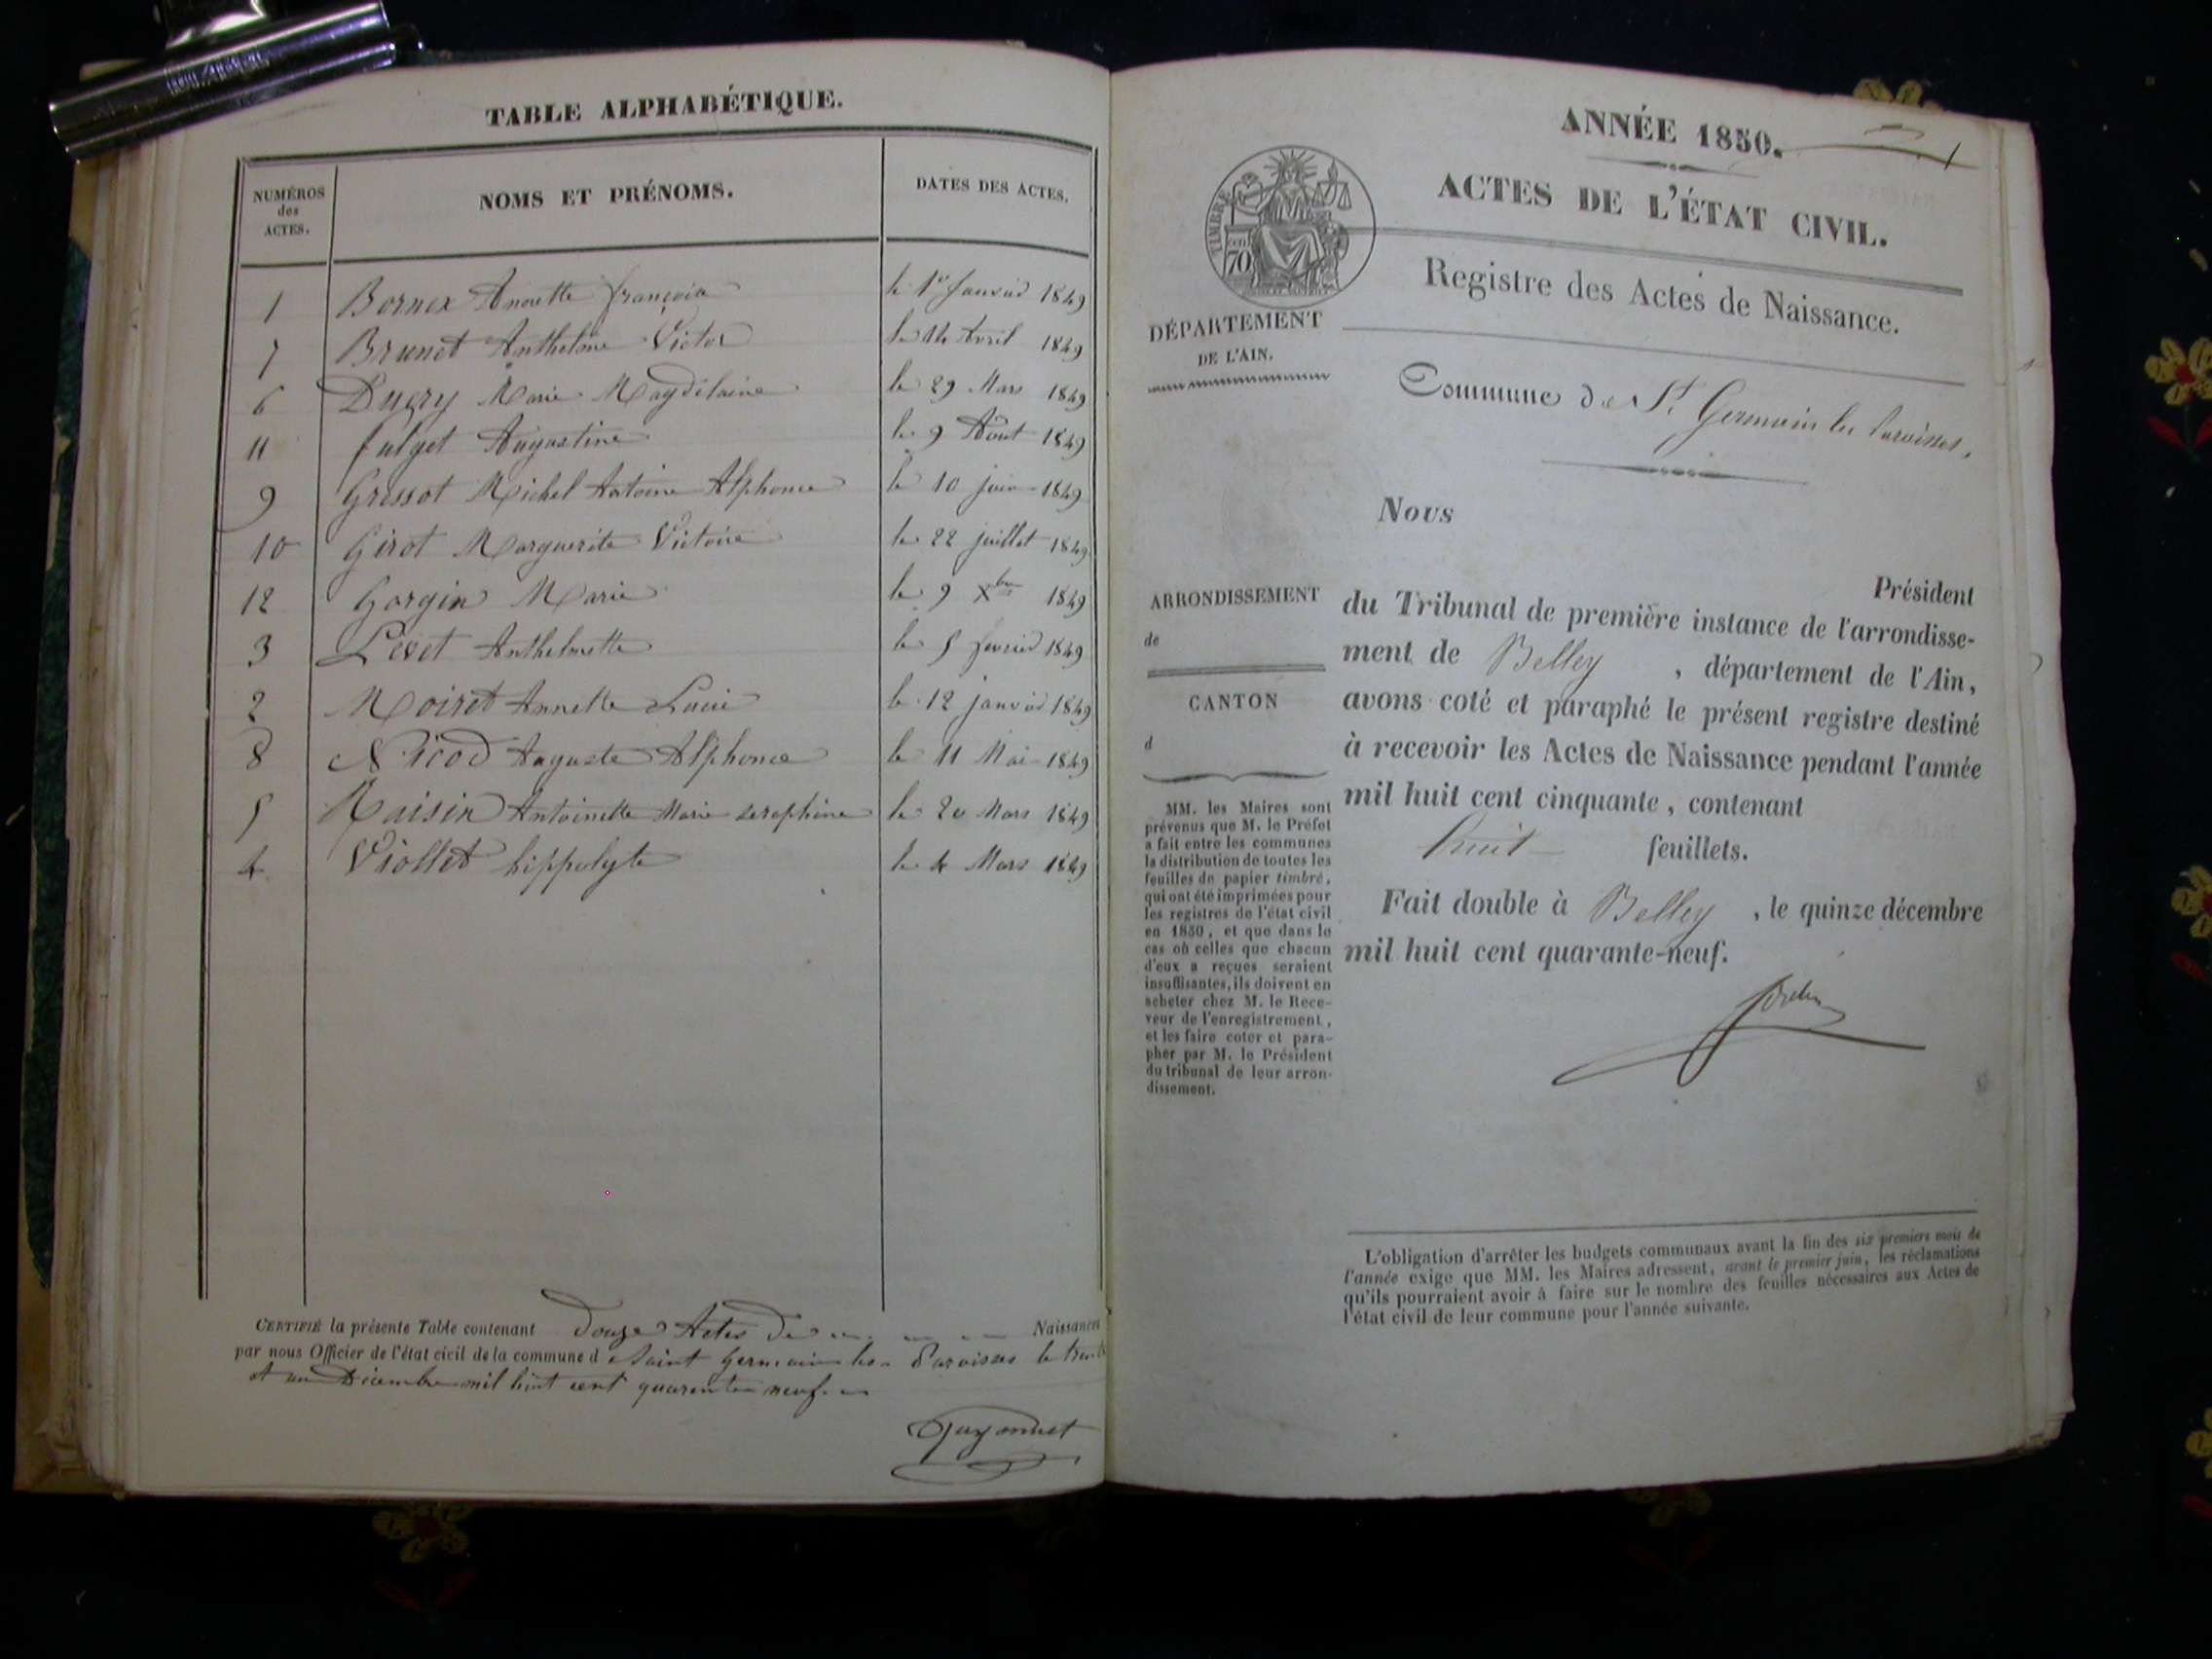 TABLE ALPHABÉTIQUE.
NUMÉROS des ACTES. NOMS ET PRÉNOMS. DATES DES ACTES.
1 Bornex Annette françoise le 1er Janvier 1849
7 Brunet Anthelme Victor le 14 Avril 1849
6 Ducry Marie Magdelaine le 29 Mars 1849
11 fulget Augustine le 9 Aout 1849
9 Grissot Michel Antoine Alphonce le 10 juin 1849
10 Girot Marguerite Victoire le 22 juillet 1849
12 Gorgin Marie le 9 Xbre 1849
3 Levet Anthelmette le 5 fevrier 1849
2 Moiret Annette Lucie le 12 janvier 1849
8 Nicod Auguste Alphonce le 11 Mai 1849
5 Raisin Antoinette Marie seraphine le 20 Mars 1849
4 Viollet hippolyte le 4 Mars 1849
CERTIFIÉ la présente Table contenant Douze Actes De Naissances
par nous Officier de l'état civil de la commune d Saint Germain les Paroisses le trente
et un Décembre mil huit cent quarente neuf.
Guyonnet
ANNÉE 1850.
1
ACTES DE L'ÉTAT CIVIL.
TIMBRE
70
Registre des Actes de Naissance.
DÉPARTEMENT
DE L'AIN.
Commune de St Germain les Paroisses,
Nous
Président
ARRONDISSEMENT
de
CANTON
d
du Tribunal de première instance de l'arrondisse-
ment de Belley , département de l'Ain,
avons coté et paraphé le présent registre destiné
à recevoir les Actes de Naissance pendant l'année
mil huit cent cinquante, contenant
huit feuillets.
Fait double à Belley , le quinze décembre
mil huit cent quarante-neuf.
MM. les Maires sont
prévenus que M. le Préfet
a fait entre les communes
la distribution de toutes les
feuilles de papier timbré,
qui ont été imprimées pour
les registres de l'état civil
en 1850, et que dans le
cas où celles que chacun
d'eux a reçues seraient
insuffisantes, ils doivent en
acheter chez M. le Rece-
veur de l'enregistrement,
et les faire coter et para-
pher par M. le Président
du tribunal de leur arron-
dissement.
L'obligation d'arrêter les budgets communaux avant la fin des six premiers mois de
l'année exige que MM. les Maires adressent, avant le premier juin, les réclamations
qu'ils pourraient avoir à faire sur le nombre des feuilles nécessaires aux Actes de
l'état civil de leur commune pour l'année suivante.